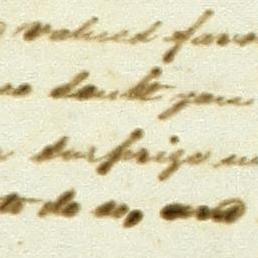 valued favor
doubt your
surprize
to do so, and